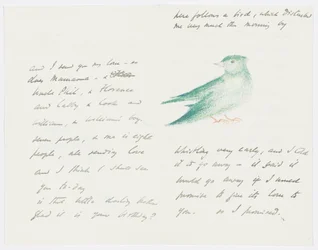 and I send you my love - so
does Mamma - & 
Uncle Phil, & Florence
and Cathy & Cook and
william, & william's boy.
seven people, & me is eight
people, all sending love
and I think I shall see
you to-day
is that nice darling when
glad it is your birthday?
here follows a bird, which disturbed
me very much this morning by
whistling very early, and I told
it to go away - it said it
would go away if I would
promise to give its love to
you. so I promised.